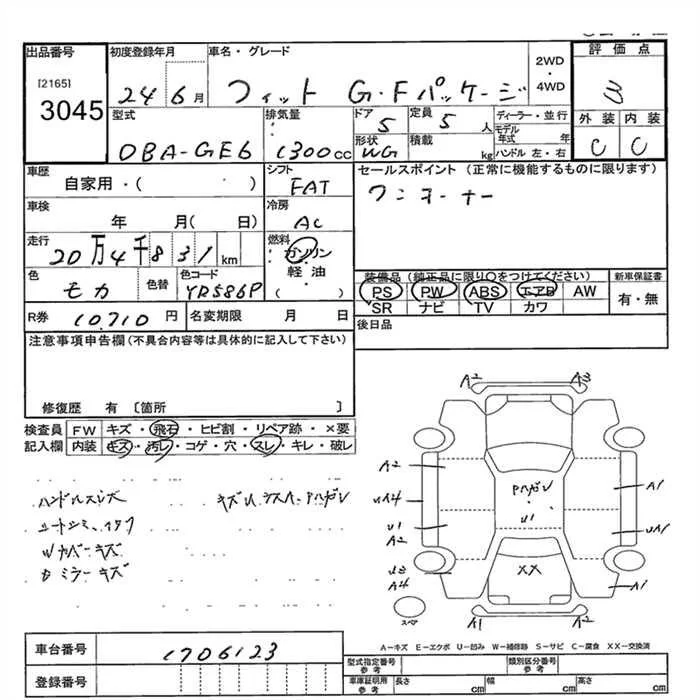 出品番号 初度登録年月 車名・グレード 2WD・4WD 評価点
[2165]
3045 24 6月 フィット G・Fパッケージ 3
型式 排気量 ドア 定員 ディーラー・並行 外装 内装
DBA-GE6 1300cc 5 5人 モデル年式 年 C C
形状 積載
WG kg ハンドル 左・右
車歴 シフト セールスポイント (正常に機能するものに限ります)
自家用・( ) FAT ワンオーナー
車検 冷房
年 月( 日) AC
走行 燃料
20万4千831km ガソリン
軽油
( )
装備品(純正品に限り〇をつけてください) 新車保証書
色 色替 色コード PS PW ABS エアB AW 有・無
モカ YR586P SR ナビ TV カワ
R券 10,710円 名変期限 月 日 後日品
注意事項申告欄(不具合内容等は具体的に記入して下さい)
修復歴 有〔箇所 〕
検査員 FW キズ・飛石・ヒビ割・リペア跡・×要
記入欄 内装 キズ・汚レ・コゲ・穴・スレ・キレ・破レ
ハンドルスレ大
シートシミ・
Wカバーキズ
Bミラーキズ
A2 A3
A2
UA4 Pハガレ A1
U1 U1 UA1
A2
U3 XX
A4 A1
スペア A1 A2
A-キズ E-エクボ U-凹み W-補修跡 S-サビ C-腐食 XX-交換済
車台番号 1706123
登録番号
型式指定番号 参考 類別区分番号 参考
車庫証明用 参考 長さ cm 幅 cm 高さ cm